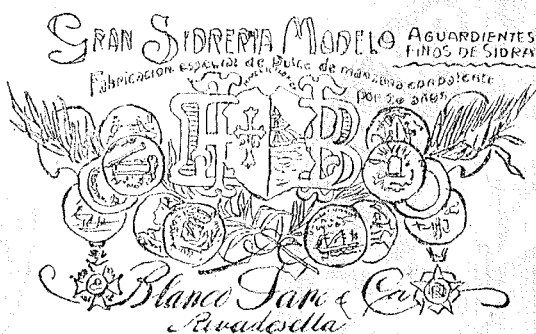 GRAN SIDRERIA MODELO
AGUARDIENTES
FINOS DE SIDRA
Fabricacion especial de Dulce de manzana con patente
por 20 años
H B
Blanco Caro & Cª
Rivadesella